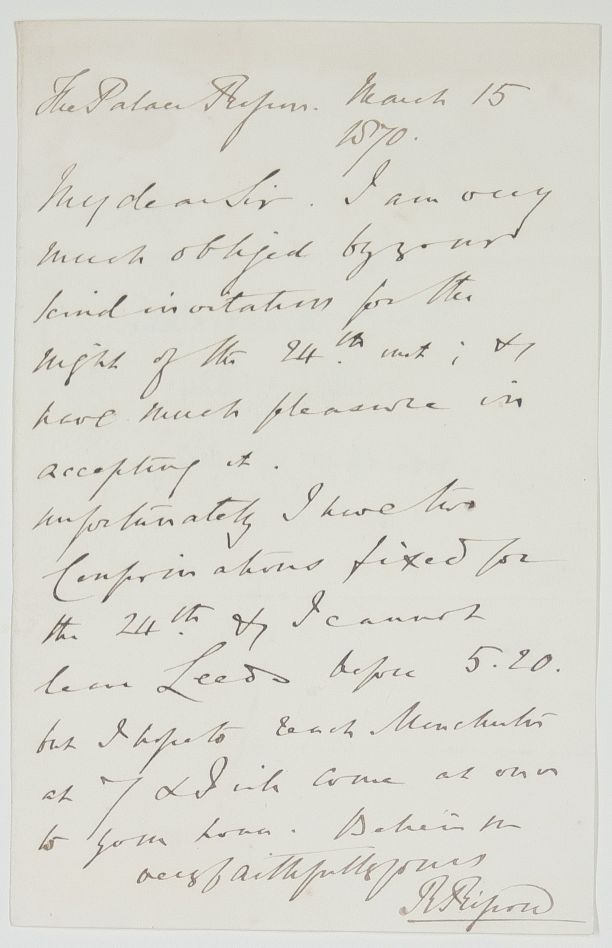 The Palace Ripon. March 15
1870.
My dear Sir. I am very
much obliged by your
kind invitation for the
night of the 24th inst; &
have much pleasure in
accepting it.
unfortunately I have two
Confirmations fixed for
the 24th & I cannot
leave Leeds before 5.20.
but I hope to reach Manchester
at 7 & I will come at once
to your house. Believe me
very faithfully yours
R Ripon